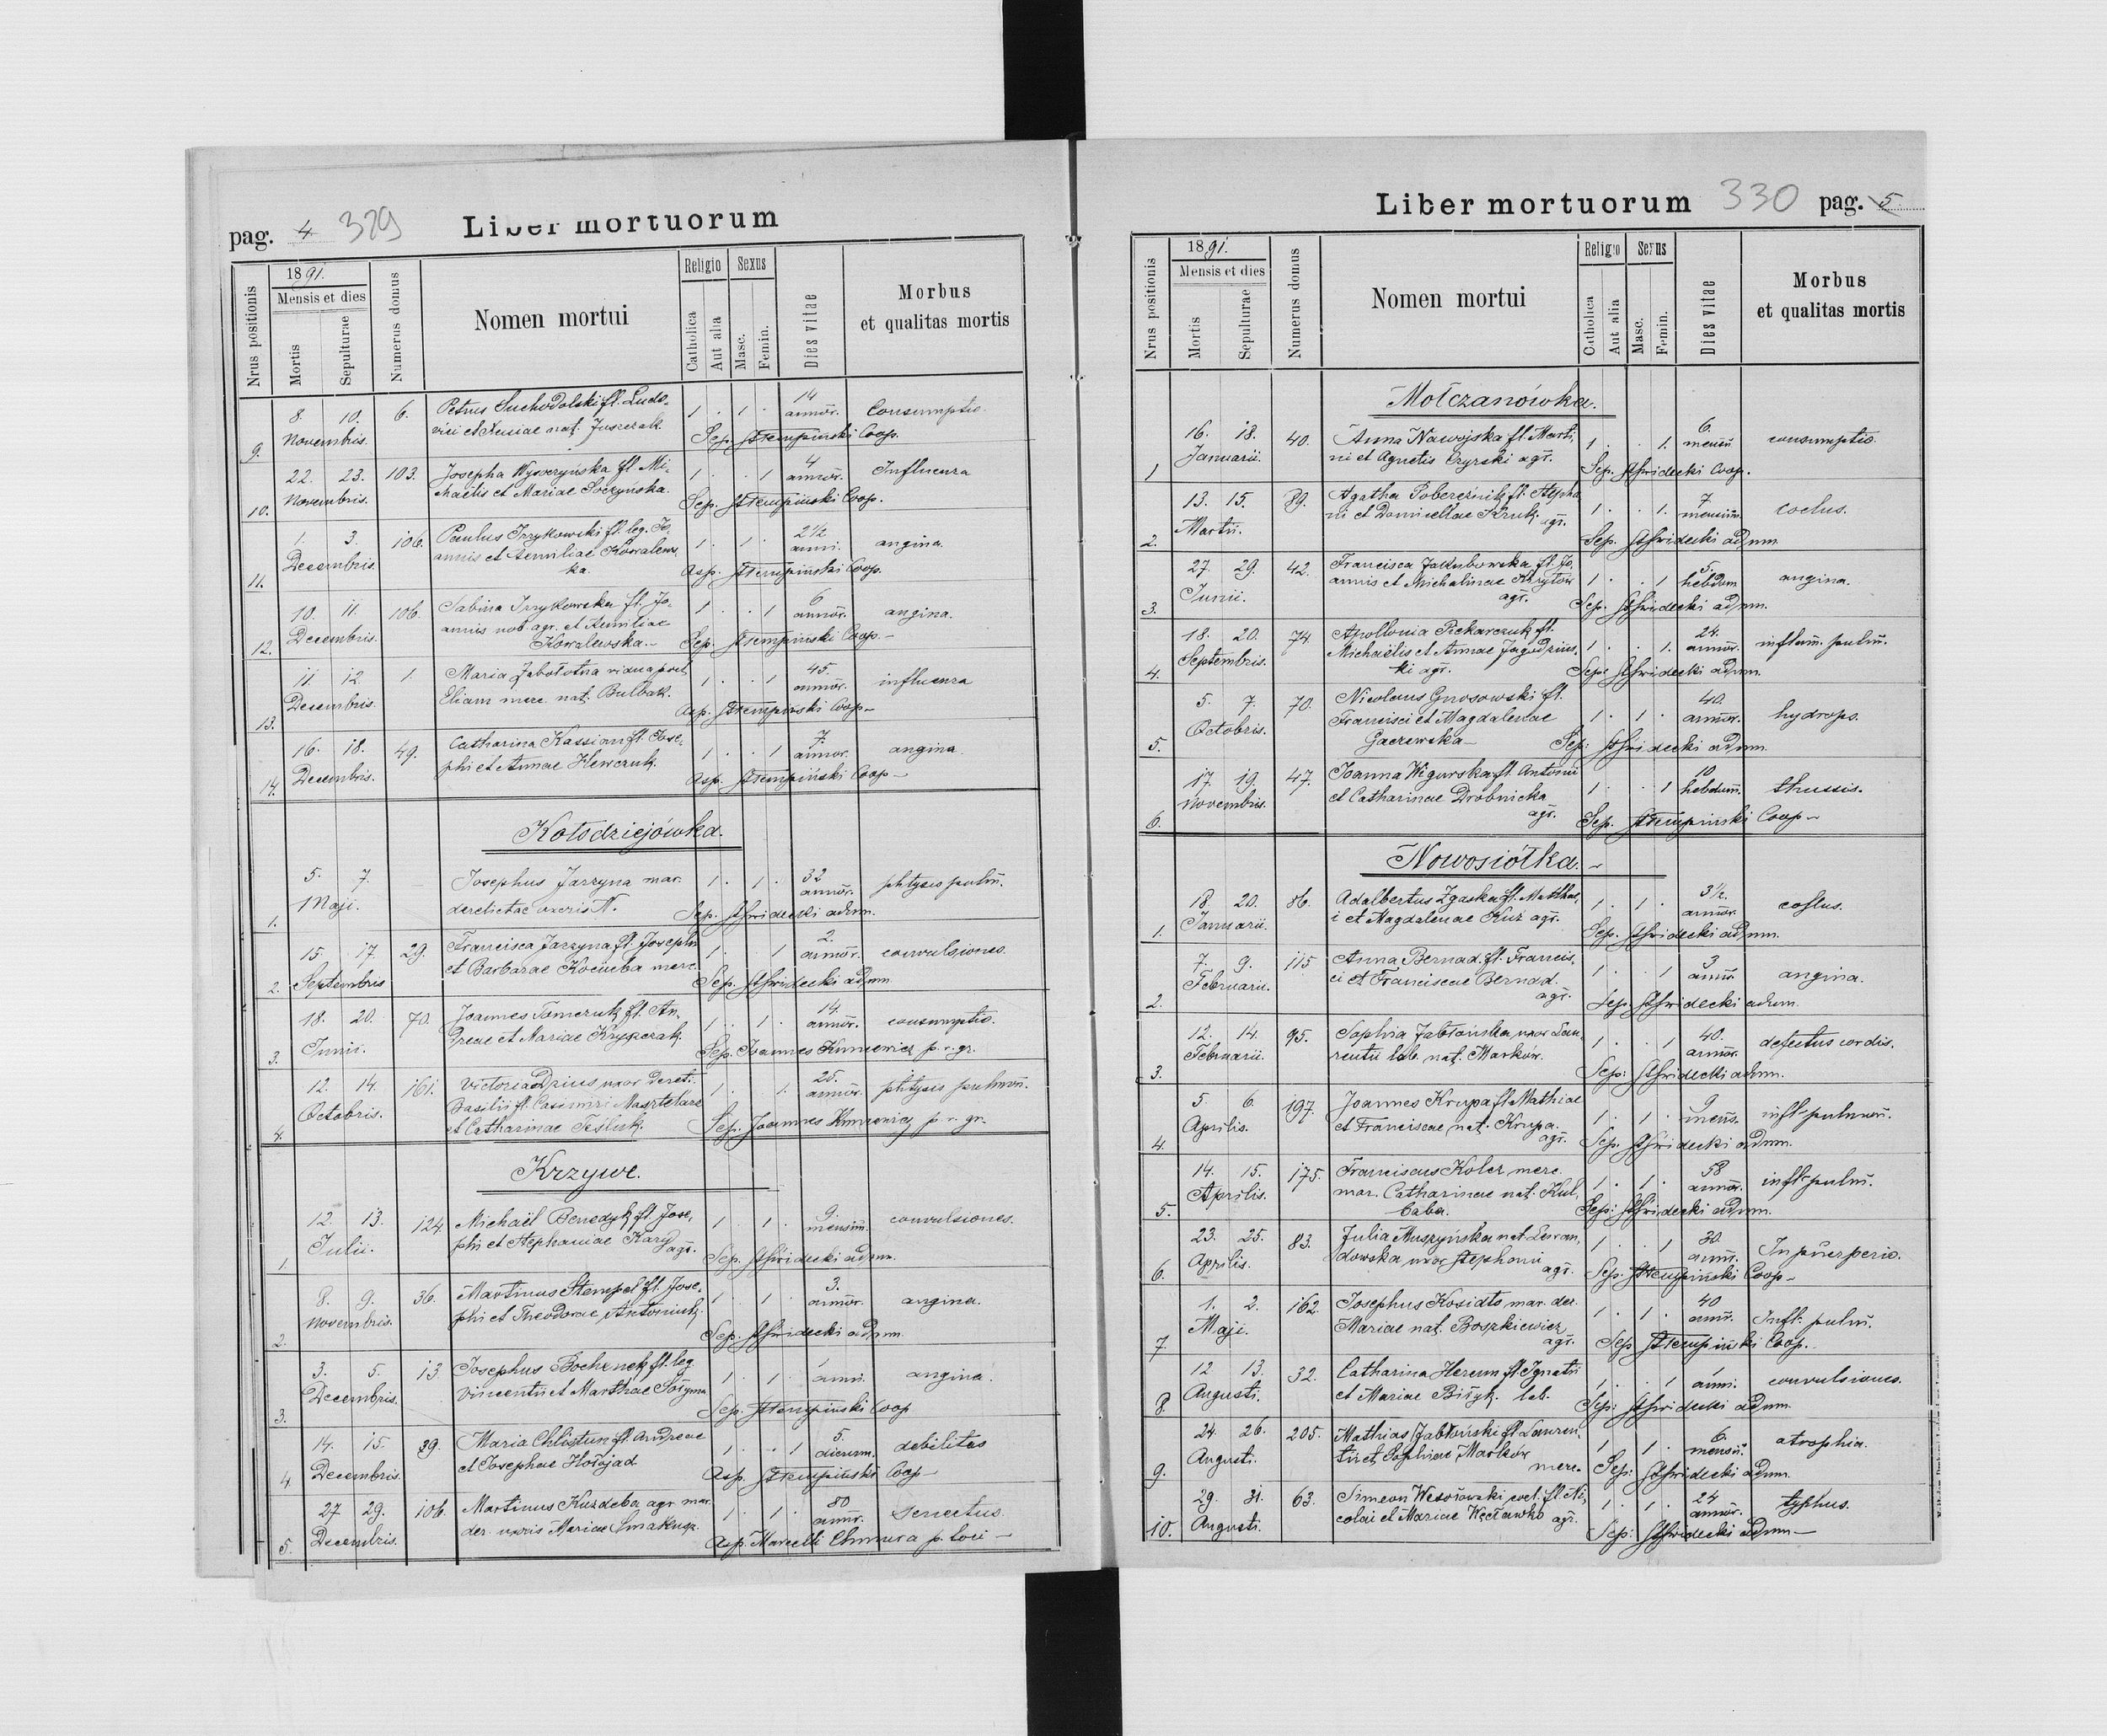 pag. 4 329 Liber mortuorum
Nrus positionis
1891.
Mensis et dies
Mortis
Sepulturae
Numerus domus
Nomen mortui
Religio
Catholica
Aut alia
Sexus
Masc.
Femin.
Dies vitae
Morbus
et qualitas mortis
9. 8. 10. Novembris. 6. Petrus Suchodolski fl. Ludo-
vici et nat. Juszczak. 1 . 1 . 14 annor. Consumptio.
Sep. Stempinski Coop.
10. 22. 23. Novembris. 103. Josepha Wyszczyńska fl. Mi-
chaelis et Mariae Soczyńska. 1 . . 1 4 annor. Influenza
Sep. Stempinski Coop.
11. 1. 3. Decembris. 106. Paulus Irzykowski fl. leg. Jo-
annis et Aemiliae Kowalews-
ka. 1 . 1 . 2 1/2 anni. angina.
Asp. Stempinski Coop.
12. 10. 11. Decembris. 106. Sabina Irzykowska fl. Jo-
annis nob agr. et Aemiliae
Kowalewska.- 1 . . 1 6 annor. angina.
Sep. Stempinski Coop.-
13. 11. 12. Decembris. 1. Maria Zabołotna vidua post
Eliam merc. nat. Bulbak. 1 . . 1 45. annor. influenza
Asp. Stempinski Coop-
14. 16. 18. Decembris. 49. Catharina Kassian fl. Jose-
phi et Annae Hewczuk. 1 . . 1 7. annor. angina
Asp. Stempiński Coop-
Kołodziejówka.
1. 5. 7. Maji. - Josephus Jarzyna mar.
derelictae uxoris N. 1 . 1 . 32 annor. phtysis pulm.
Sep. adnm.
2. 15. 17. Septembris 29. Francisca Jarzyna fl. Josephi
et Barbarae Kociuba merc. 1 . . 1 2. annor. convulsiones.
Sep. adnm
3. 18. 20. Junii. 70. Joannes Tomczuk fl. An-
dreae et Mariae Kryszczak. 1 . 1 . 14. annor. consumptio.
Sep. Joannes p. r. gr.
4. 12. 14. Octobris. 161. Victoria Dzius uxor derel.
Basilii fl. Casimiri
et Catharinae Tesluk. 1 . . 1. 25. annor. phtysis pulmon.
Sep. Joannes p. r. gr.
Krzywe.
1 12. 13. Julii. 124. Michaël Benedyk fl Jose-
phi et Stephaniae Karyj agr. 1 1 . 9. mensium. convulsiones.
Sep. adnm.
2. 8. 9. Novembris. 36. Martinus Stempel fl. Jose-
phi et Theodorae Antoniuk. 1 . 1 . 3. annor. angina.
Sep. adnm
3. 3. 5. Decembris. 13. Josephus Bochenek fl. leg
Vincentii et Marthae 1 . 1 . 1 anni. angina.
Sep. Stempinski Coop
4 14. 15. Decembris. 39. Maria Chlistun fl. Andreae
et Josephae 1 . . 1 5. dierum. debilitas
Asp. Stempinski Coop-
5. 27 29. Decembris. 106. Martinus Kuzdeba agr. mar.
der. uxoris Mariae 1 . 1 . 80 annor. senectus.
Asp. Marcelli Chmura p. loci -
Liber mortuorum 330 pag. 5
Nrus positionis
1891.
Mensis et dies
Mortis
Sepulturae
Numerus domus
Nomen mortui
Religio
Catholica
Aut alia
Sexus
Masc.
Femin.
Dies vitae
Morbus
et qualitas mortis
Mołczanówka.
1 16. 18. Januarii. 40. Anna Nawojska fl. Marti-
ni et Agnetis Czyrski agr. 1 . . 1. 6. mensiu consumptio.
Sep. Coop.
2. 13. 15. Martii. 89. Agatha Pobereźnik fl. Stepha-
ni et Domicellae Kruk. agr. 1 . . 1. 7 mensium. coctus.
Sep. adnm
3. 27. 29. Junii. 42. Francisca Jakubowska fl. Jo-
annis et Michalinae agr. 1 . . 1 5. hebdom angina.
Sep. adnm.
4. 18. 20. Septembris. 74. Apollonia Piekarczuk fl.
Michaëlis et Annae Jagodzins-
ki agr. 1 . . 1. 24. annor. inflam. pulm.
Sep. adnm.
5. 5. 7. Octobris. 70. Nicolaus Gnosowski fl.
Francisci et Magdalenae
Gaczewska- 1 . 1 . 40. annor. hydrops.
Sep: adnm
6. 17. 19. Novembris. 47. Joanna Wigurska fl. Antonii
et Catharinae Drobnicka
agr. 1 . . 1 10 hebdom. thussis.
Sep. Stempinski Coop-
Nowosiółka.-
1. 18. 20. Januarii. 86. Adalbertus Zgaska fl. Matthae-
i et Magdalenae Kuz agr. 1 . 1 . 3 1/2. annor.
Sep. adnm.
2. 7. 9. Februarii. 115 Anna Bernad. fl. Francis-
ci et Franciscae Bernad.
agr. 1 . . 1 3 annor angina.
Sep. adnm.
3. 12. 14. Februarii. 95. Sophia Jabłońska uxor Lau-
rentii lab. nat. Marków. 1 . . 1 40. annor. defectus cordis.
Sep: adnm.
4. 5. 6. Aprilis. 197. Joannes Krupa fl Mathiae
et Franciscae nat. Krupa.
agr. 1 . 1 . 9 mens. infl- pulmon.
Sep. adnm.
5. 14. 15. Aprilis. 175. Franciscus Koler merc.
mar. Catharinae nat. Kul-
baba. 1 . 1 . 58 annor. infl- pulm.
Sep: adnm.
6. 23. 25. Aprilis. 83. Julia Muszyńska nat Lewan-
dowska uxor Stephani agr. 1 . . 1 30. annor. In puerperio.
Sep. Stempinski Coop-
7 1. 2. Maji. 162. Josephus Kosidło mar. der.
Mariae nat. Boszkiewicz
agr. 1 . 1 . 40 annor. Infl. pulm.
Sep Stempinski Coop.-
8. 12 13. Augusti. 32. Catharina Herum fl Ignatii
et Mariae lab. 1 . . 1 1 anni. convulsiones.
Sep: adnm
9. 24. 26. Augusti. 205. Mathias Jabłoński fl Lauren-
tii et Sophiae Marków
merc. 1 1 . 6. mensiu. atrophia.
Sep: adnm.
10. 29. 31. Augusti. 63. Simeon Wesołowski coel. fl. Ni-
colai et Mariae agr. 1 . 1 . 24 annor. typhus.
Sep: adnm-